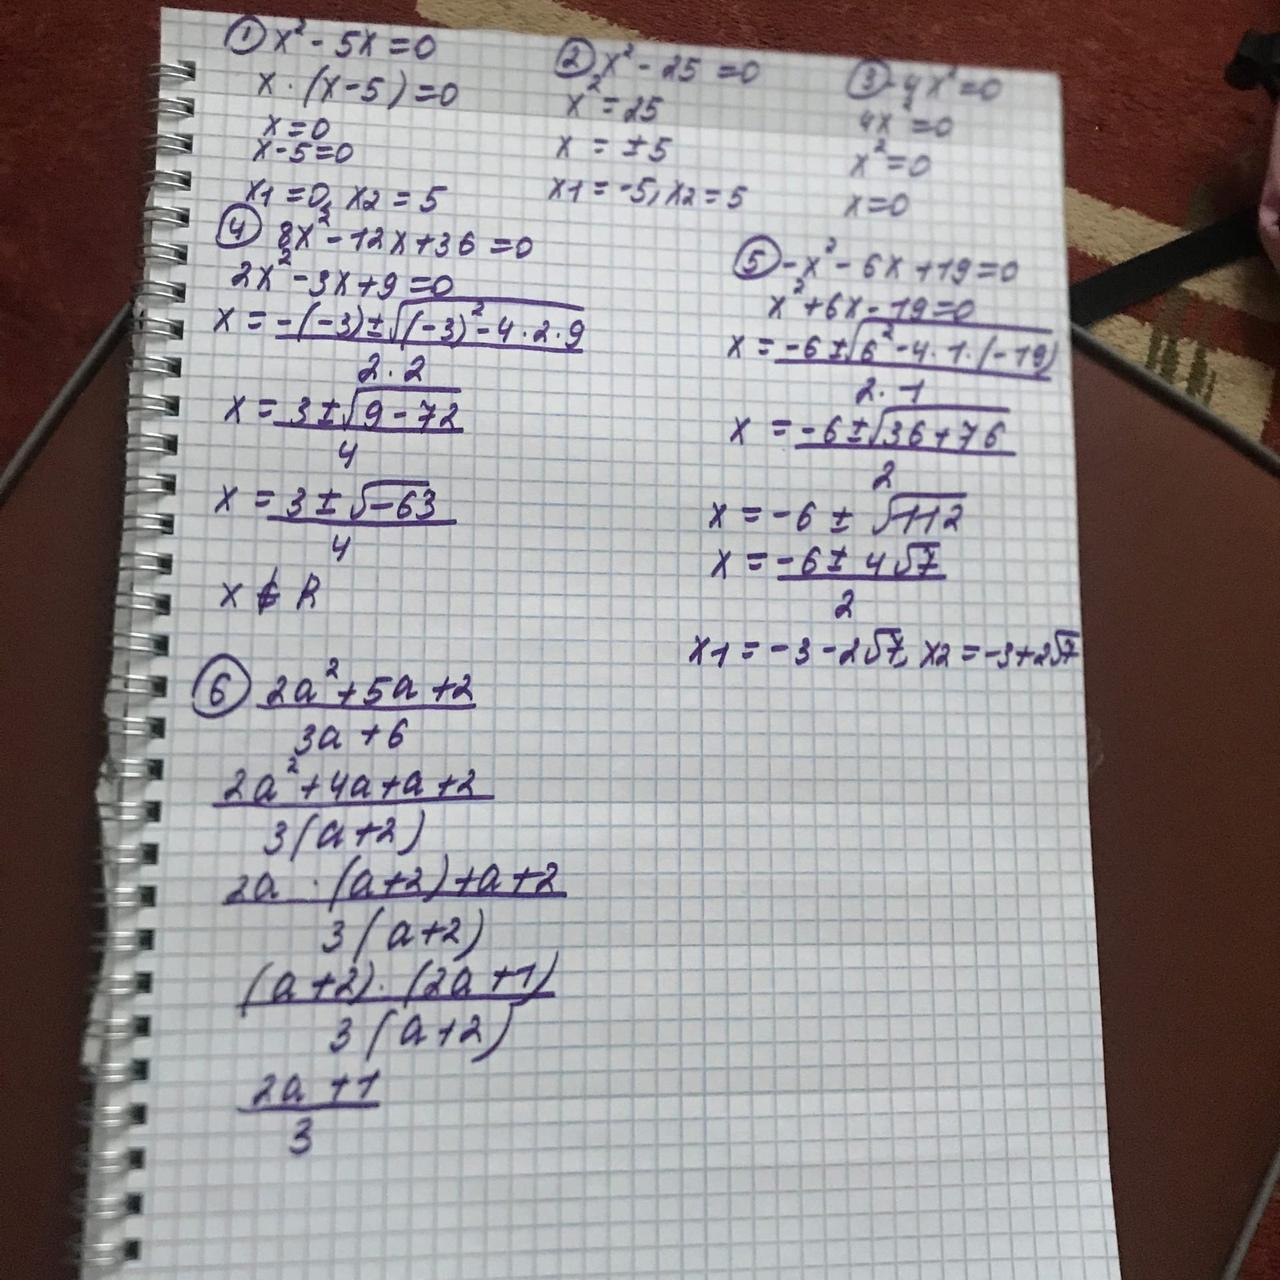 ① x² - 5x = 0
x · (x-5) = 0
x = 0
x-5=0
x1 = 0, x2 = 5
② x² - 25 = 0
x² = 25
x = ±5
x1 = -5, x2 = 5
③ -4x² = 0
4x² = 0
x² = 0
x = 0
④ 8x² - 12x + 36 = 0
2x² - 3x + 9 = 0
x = -(-3) ± √(-3)² - 4 · 2 · 9
2 · 2
x = 3 ± √9 - 72
4
x = 3 ± √-63
4
x ∉ R
⑤ -x² - 6x + 19 = 0
x² + 6x - 19 = 0
x = -6 ± √6² - 4 · 1 · (-19)
2 · 1
x = -6 ± √36 + 76
2
x = -6 ± √112
x = -6 ± 4√7
2
x1 = -3 - 2√7, x2 = -3 + 2√7
⑥ 2a² + 5a + 2
3a + 6
2a² + 4a + a + 2
3(a+2)
2a · (a+2) + a + 2
3(a+2)
(a+2) · (2a+1)
3(a+2)
2a + 1
3